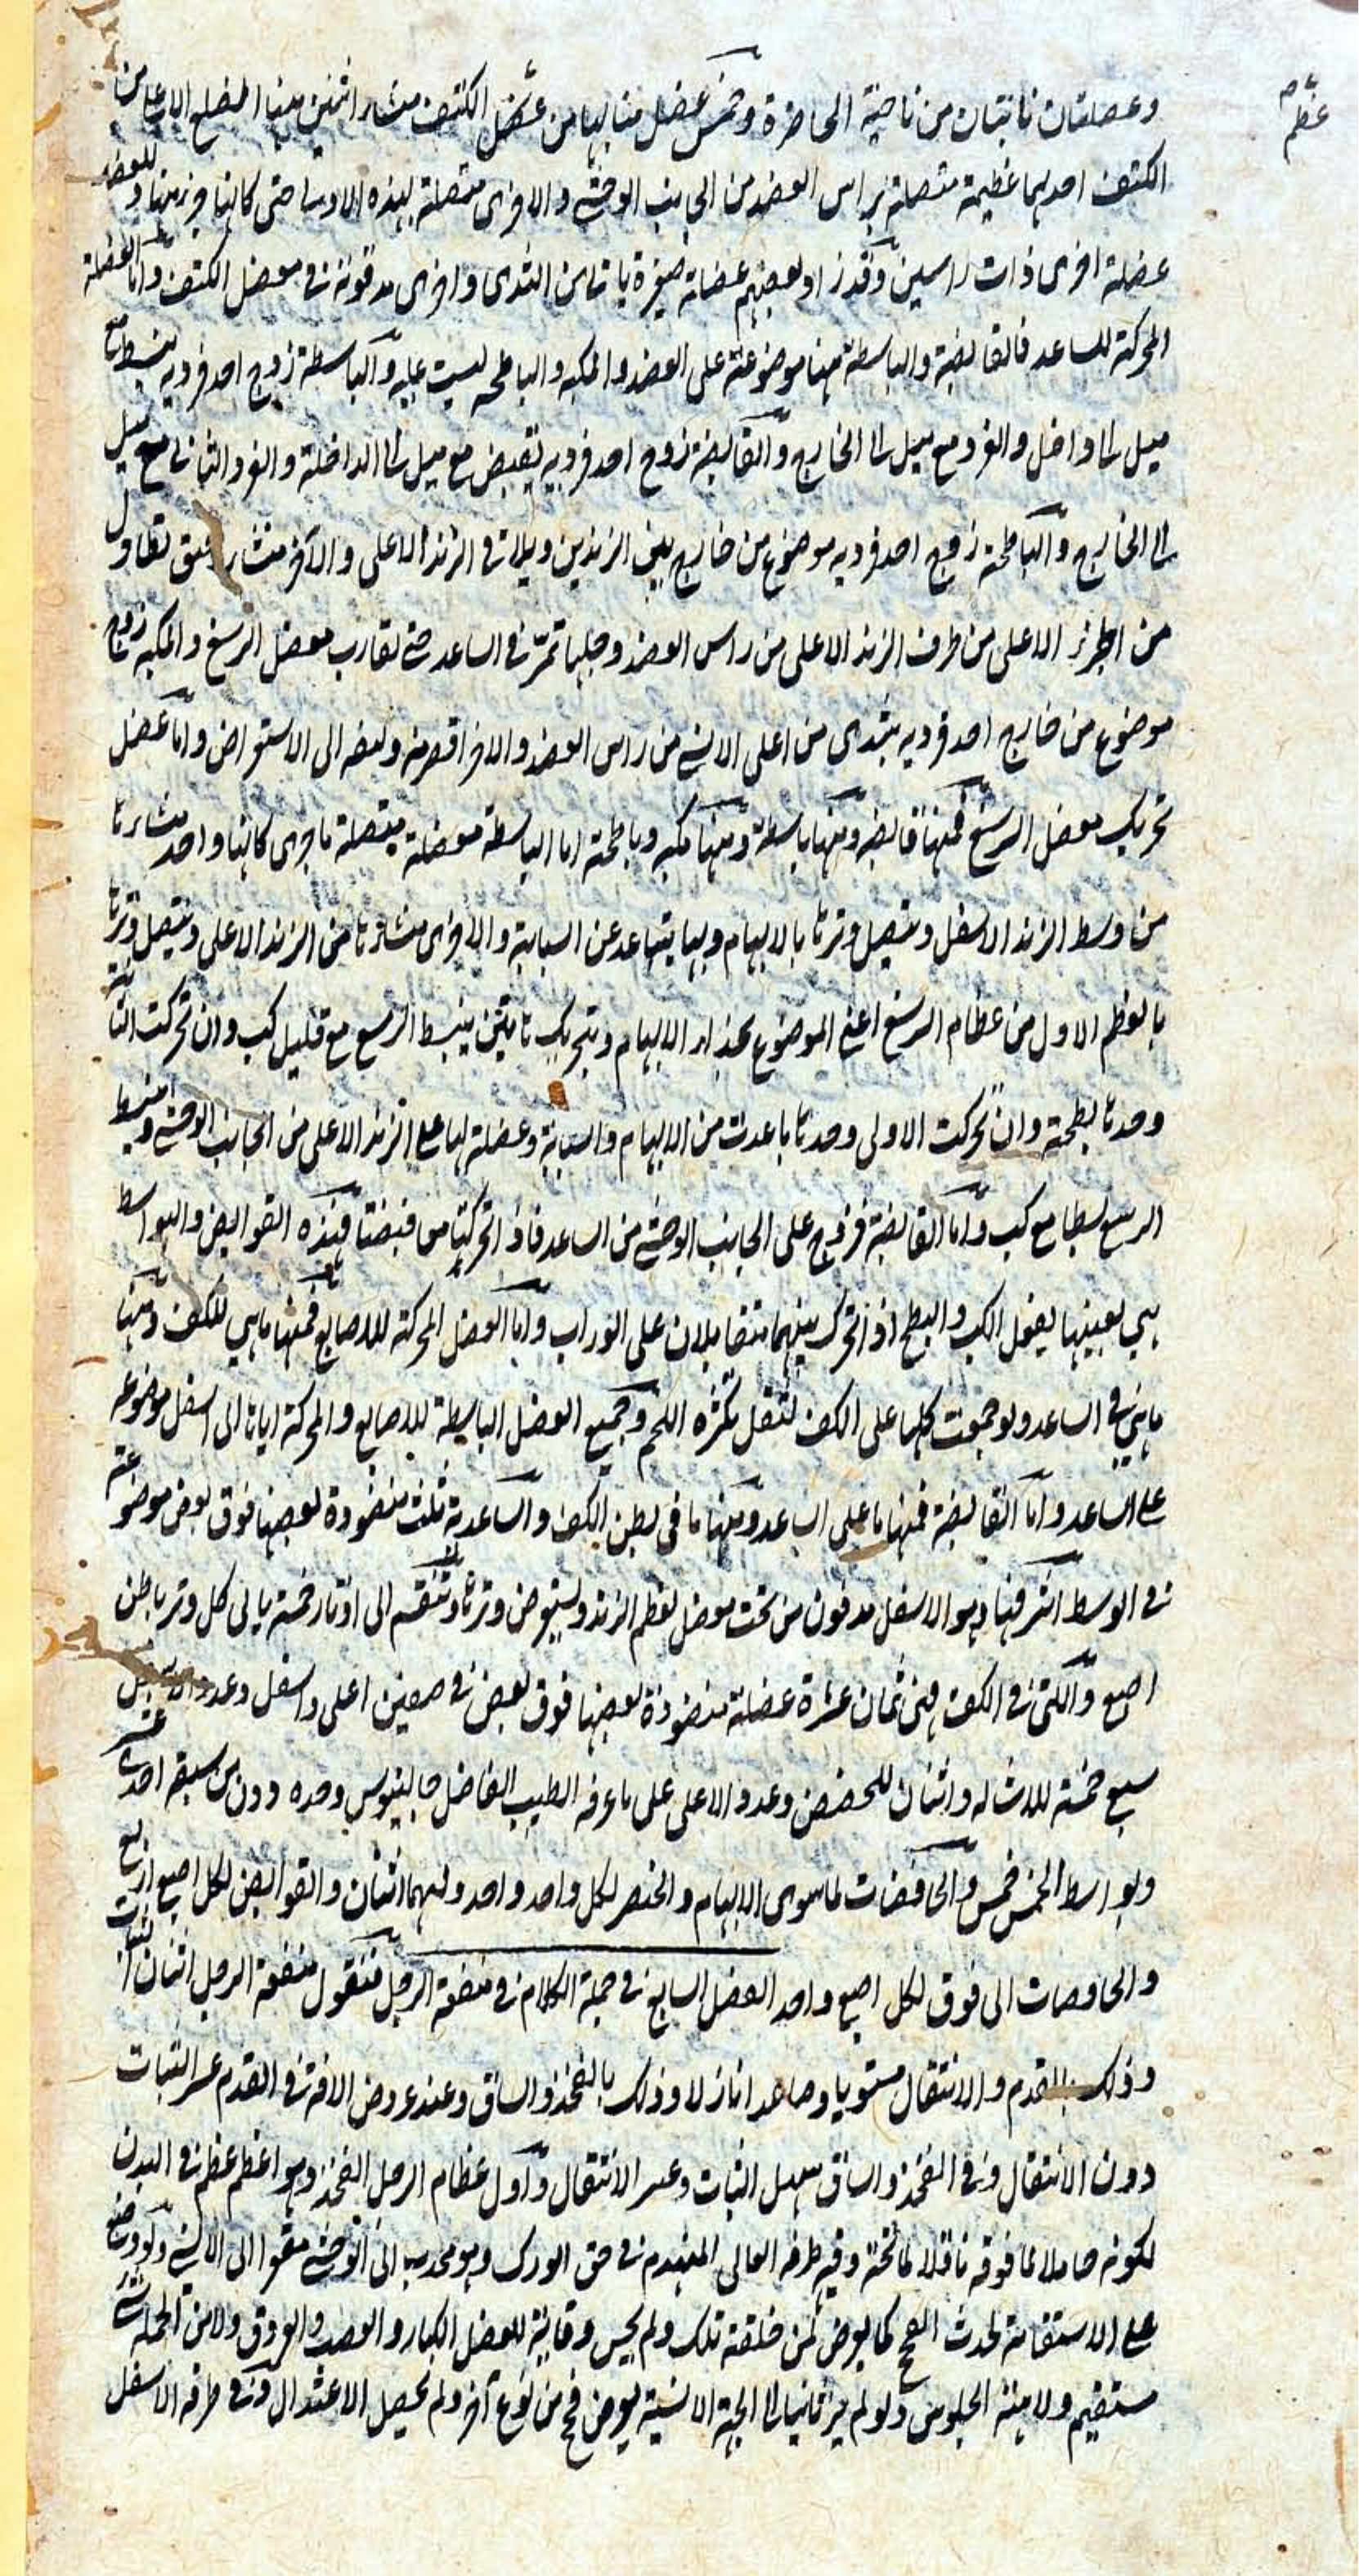 عظم
وعضلتان نابتتان من ناحية الخاصرة وخمس عضل منابتها من عظم الكتف منشأ اثنتين منها الضلع الاعلى من
الكتف احديهما عظيمة متصلة براس العضد من الجانب الوحشي والاخرى متصلة بهذه الاولى حتى كانها جزء منها وللعضد
عضلة اخرى ذات راسين وقد زاد بعضهم عضلة صغيرة ياتى من الثدى واخرى مدفونة فى مفصل الكتف واما العضلة
المحركة للساعد فالقابضة والباسطة منها موضوعة على العضد والمكبة والباطحة ليست عليه والباسطة زوج احد فرديه يبسط مع
ميل الى داخل والفرد مع ميل الى الخارج والقابضة زوج احد فرديه يقبض مع ميل الى الداخلة والفرد الثانى مع ميل
الى الخارج والباطحة زوج احد فرديه موضوع من خارج بين الزندين ويلاقى الزند الاعلى والآخر متطاول
من الجزء الاعلى من طرف الزند الاعلى من راس العضد وجلها تمر فى الساعد حتى تقارب مفصل الرسغ والمكبة زوج
موضوع من خارج احد فرديه يبتدى من اعلى الانسي من راس العضد والاخر اقصر منه وليفه الى الاستعراض واما عضل
تحريك مفصل الرسغ فمنها قابضة ومنها باسطة ومنها مكبة وباطحة اما الباسطة فعضلة متصلة باخرى كانها واحد منشاءها
من وسط الزند الاسفل ويتصل وترها بالابهام وبها يتباعد عن السبابة والاخرى منشاءها من الزند الاعلى ويتصل وترها
بالعظم الاول من عظام الرسغ اعنى الموضوع بحذاء الابهام وبتحريك هاتين ينبسط الرسغ مع قليل كب وان تحركت الثانية
وحدها بطحته وان تحركت الاولى وحدها باعدت من الابهام والسبابة وعضلة لها على الزند الاعلى من الجانب الوحشي وينبسط
الرسغ بسطا مع كب واما القابضة فزوج على الجانب الوحشي من الساعد فاذا تحركتا معا قبضتا فهذه القوابض والبواسط
هى بعينها يفعل الكب والبطح اذا تحرك منهما متقابلان على الوراب واما العضل المحركة للاصابع فمنها ما هى للكف ومنها
ما هى فى الساعد ولو جمعت كلها على الكف لثقل بكثرة اللحم وجميع العضل الباسطة للاصابع والمحركة اياها الى اسفل موضوعه
على الساعد واما القابضة فمنها ما على الساعد ومنها ما فى بطن الكف والساعدية ثلث منضودة بعضها فوق بعض موضوعة
فى الوسط اشرفها وهو الاسفل مدفون من تحت متصل بعظم الزند ويستعرض وترها وتنقسم الى اوتار خمسة ياتى كل وتر باطن
اصبع والتى فى الكف فهى ثمان عشرة عضلة منضودة بعضها فوق بعض فى صفين اعلى واسفل وعدد الاسفل
سبع خمسة للاشالة واثنان للخفض وعدد الاعلى على ما عرفه الطبيب الفاضل جالينوس وحده دون من سبقه احدى عشر
وبواسط الخمس خمس والخافضات لما سوى الابهام والخنصر لكل واحد واحد ولهما اثنان والقوابض لكل اصبع اربع
والخافضات الى فوق لكل اصبع واحد الفصل السابع فى جملة الكلام فى منفعة الرجل فنقول منفعة الرجل اثنان الثبات
وذلك بالقدم والانتقال مستويا وصاعدا نازلا وذلك بالفخذ والساق وعند عروض الآفة فى القدم عسر الثبات
دون الانتقال وفى الفخذ والساق سهل الثبات وعسر الانتقال واول عظام الرجل الفخذ وهو اعظم عظم فى البدن
لكونه حاملا لما فوقه ناقلا لما تحته وقبب طرفه العالى المتهندم فى حق الورك وهو محدب الى الوحشي مقعر الى الانسي ولو وضع
على الاستقامة لحدث الفحج كما يعرض لمن خلقته تلك ولم يحسن وقاية للعضل الكبار والعصب والعروق ولا من الجملة شئ
مستقيم ولا هيئة الجلوس ولو لم يرد ثانيا الى الجهة الانسية يعرض فحج من نوع آخر ولم يحصل الاعتدال وفى طرفه الاسفل